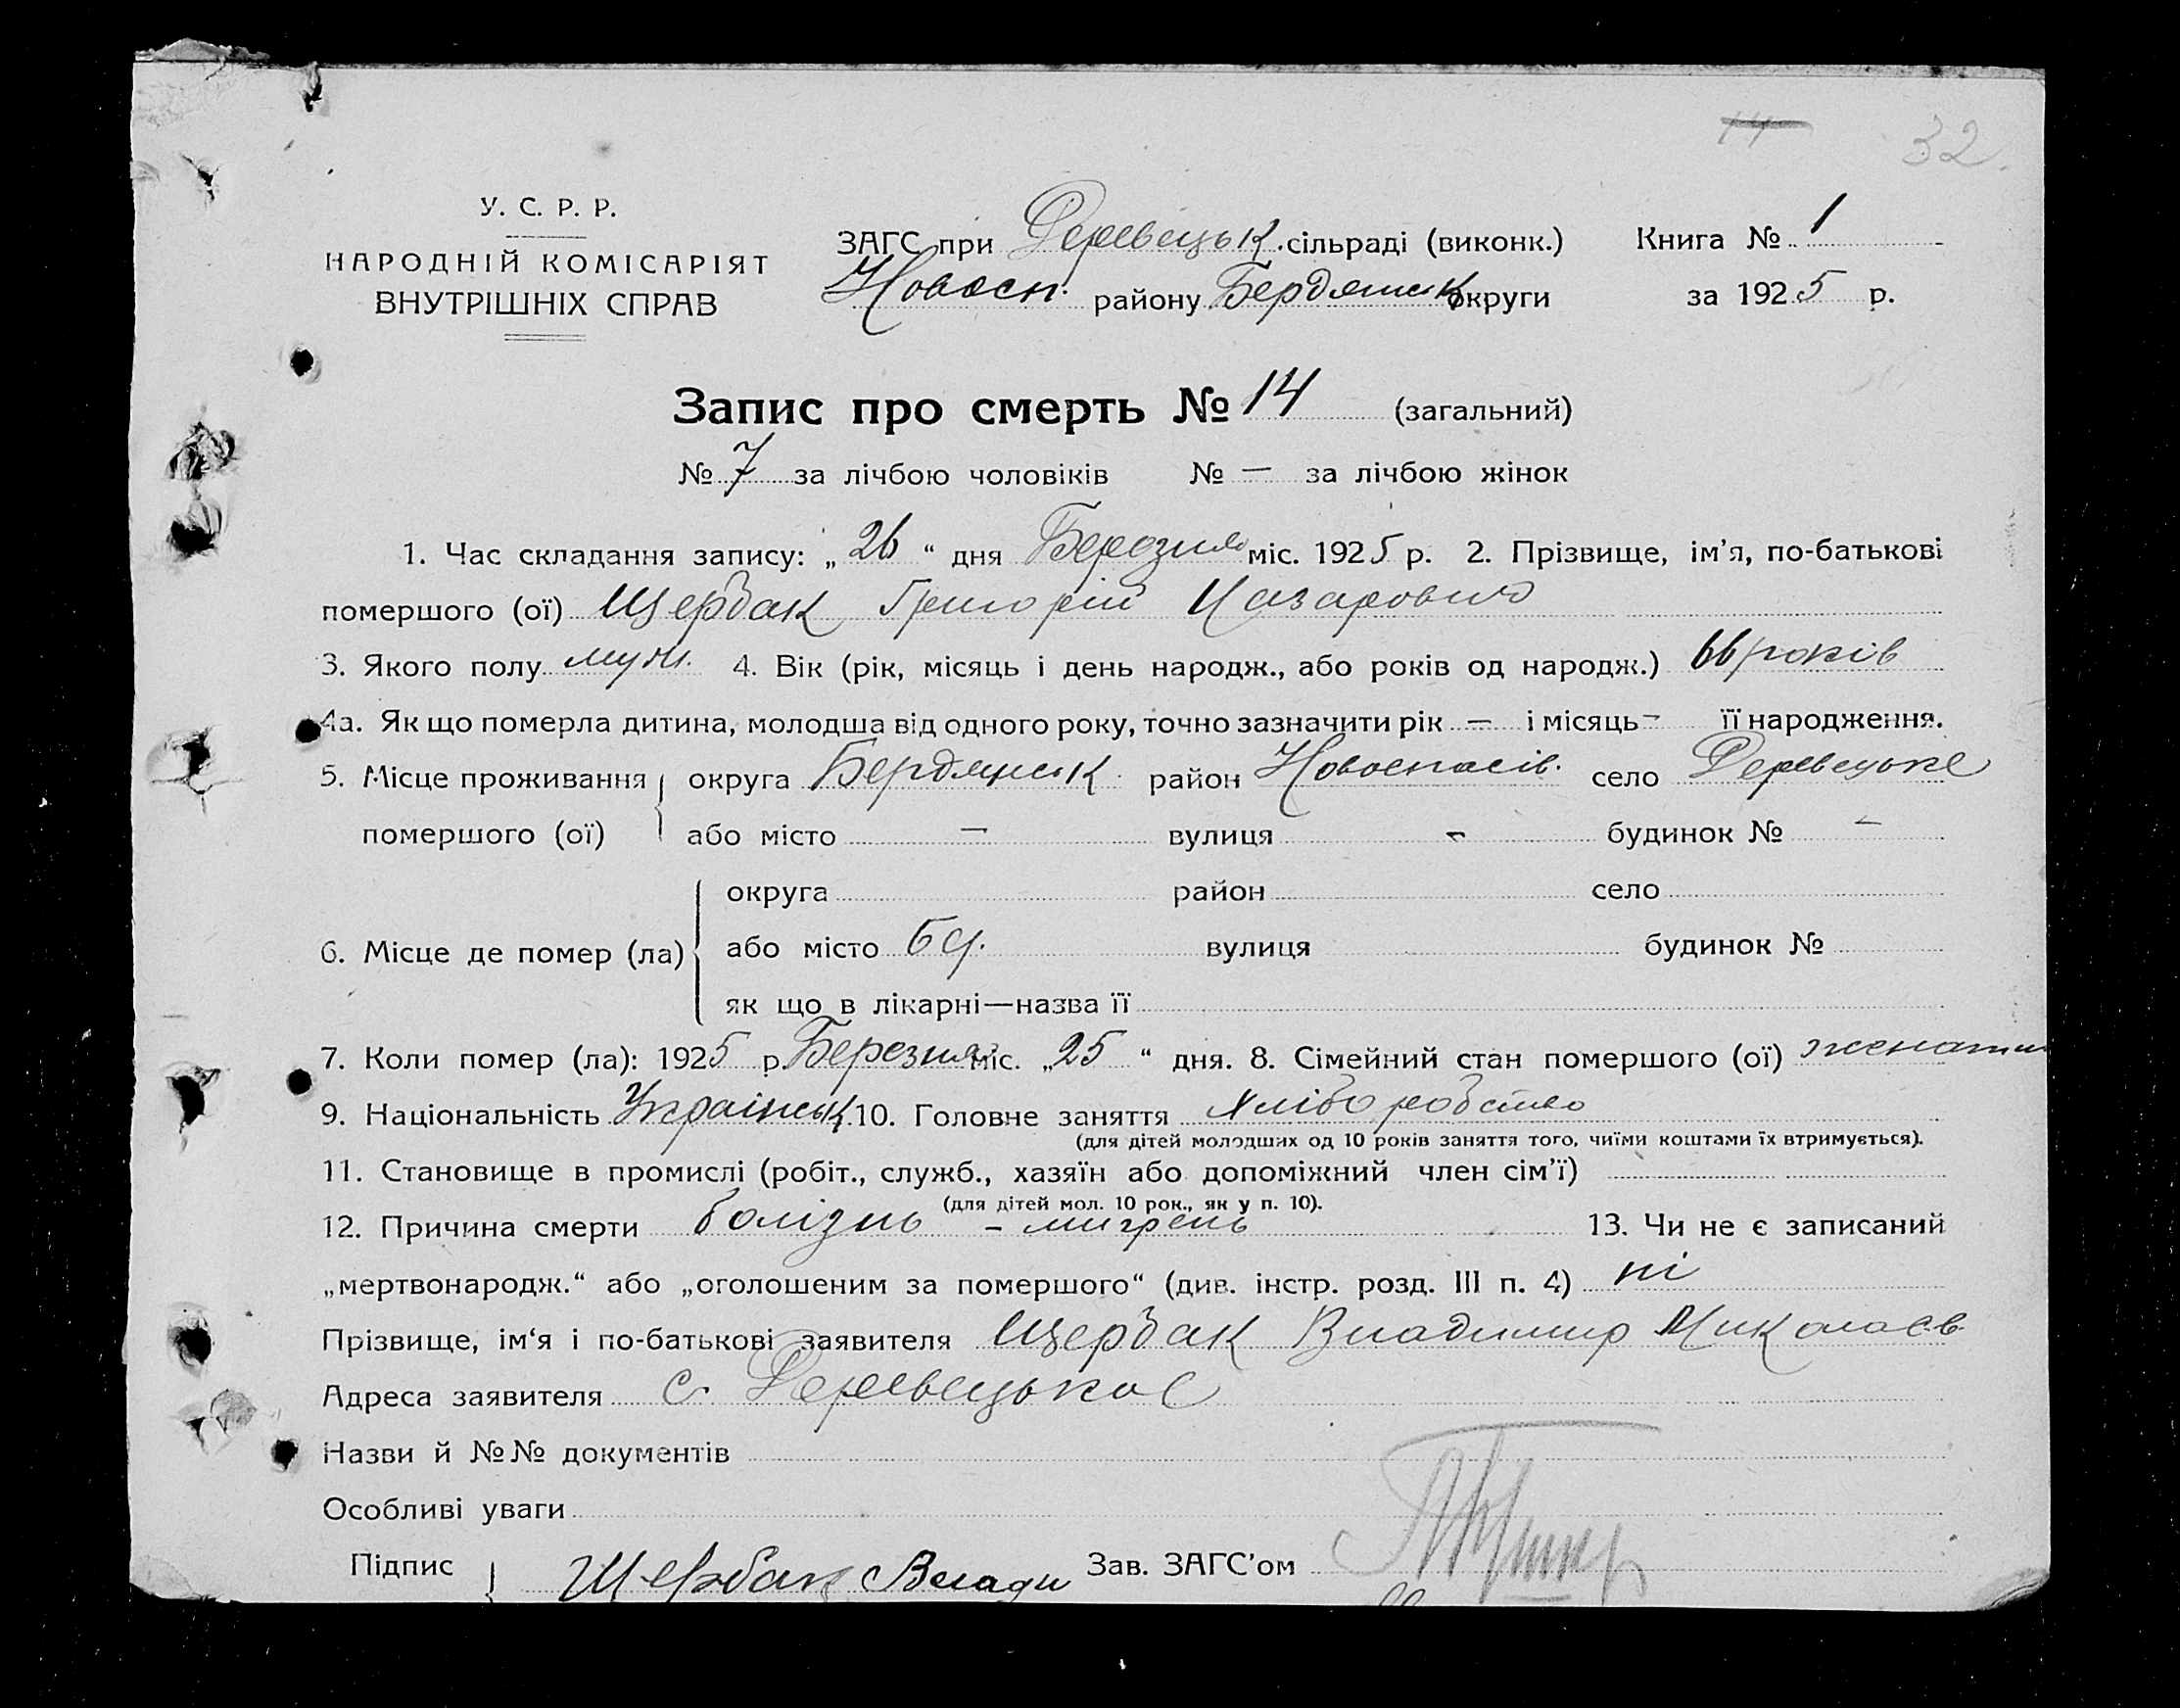 14 32.
У. С. Р. Р.
НАРОДНІЙ КОМІСАРІЯТ
ВНУТРІШНІХ СПРАВ
ЗАГС при Деревецьк. сільраді (виконк.) Книга № 1
Новосп. району Бердянськ округи за 1925 р.
Запис про смерть № 14 (загальний)
№ 7 за лічбою чоловіків № — за лічбою жінок
1. Час складання запису: „26“ дня Березня міс. 1925 р. 2. Прізвище, ім’я, по-батькові
помершого (ої) Щербак Григорій Назарович
3. Якого полу муж. 4. Вік (рік, місяць і день народж., або років од народж.) 66 років
4а. Як що померла дитина, молодша від одного року, точно зазначити рік — і місяць — її народження.
5. Місце проживання округа Бердянськ район Новоспасів. село Деревецьке
помершого (ої) або місто — вулиця — будинок № —
округа район село
6. Місце де помер (ла) або місто вулиця будинок №
як що в лікарні—назва її
7. Коли помер (ла): 1925 р. Березня міс. „25“ дня. 8. Сімейний стан помершого (ої) женати
9. Національність Українськ. 10. Головне заняття Хліборобство
(для дітей молодших од 10 років заняття того, чиїми коштами їх втримується).
11. Становище в промислі (робіт., служб., хазяїн або допоміжний член сім’ї)
(для дітей мол. 10 рок., як у п. 10).
12. Причина смерти болізнь - мигрень 13. Чи не є записаний
„мертвонародж.“ або „оголошеним за помершого“ (див. інстр. розд. III п. 4) ні
Прізвище, ім‘я і по-батькові заявителя Щербак Владимир Миколаєв
Адреса заявителя с. Деревецькоє
Назви й №№ документів
Особливі уваги
Підпис Щербак Влади Зав. ЗАГС’ом